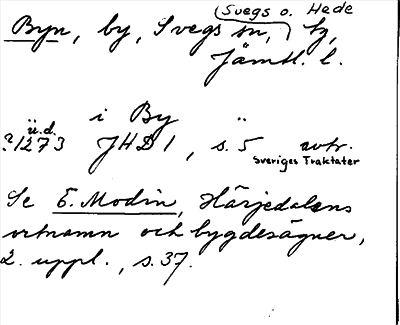 (Svegs o. Hede
Byn, by, Svegs sn,) tg,
Jämtl. l.
i By
u.d.
?1273 JHD 1, s. 5 avtr.
Sveriges Traktater
Se E. Modin, Härjedalens
ortnamn och bygdesägner,
2. uppl., s. 37.